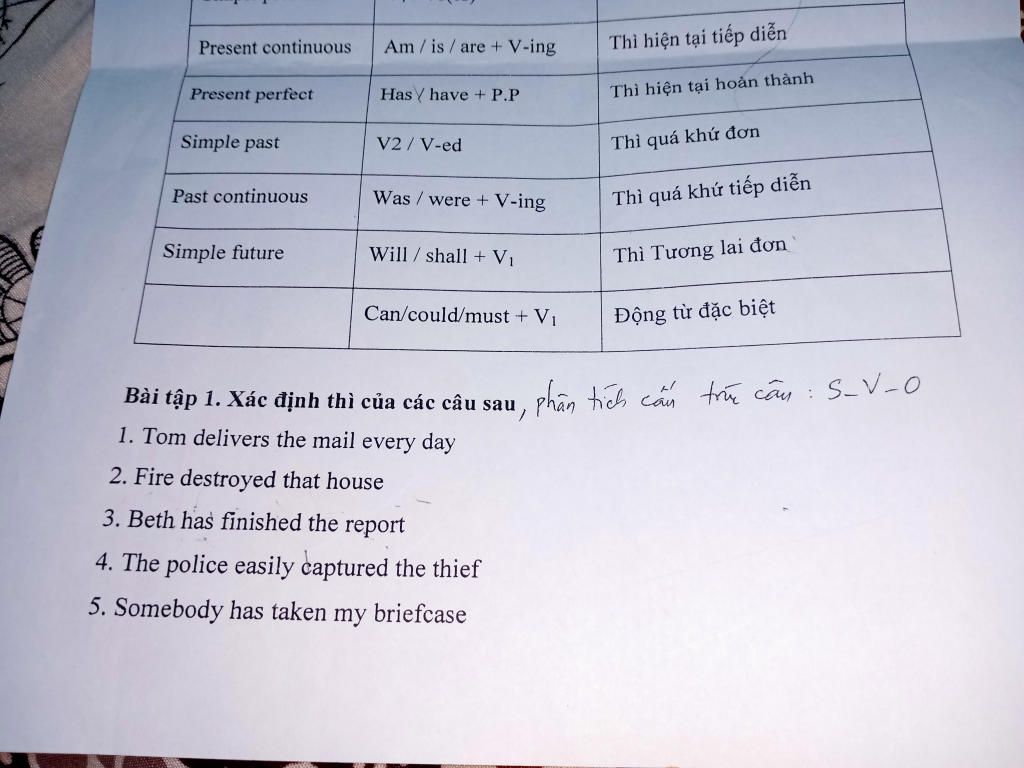 Present continuous Am / is / are + V-ing Thì hiện tại tiếp diễn
Present perfect Has / have + P.P Thì hiện tại hoàn thành
Simple past V2 / V-ed Thì quá khứ đơn
Past continuous Was / were + V-ing Thì quá khứ tiếp diễn
Simple future Will / shall + V₁ Thì Tương lai đơn
Can/could/must + V₁ Động từ đặc biệt
Bài tập 1. Xác định thì của các câu sau, phân tích cấu trúc câu : S_V_O
1. Tom delivers the mail every day
2. Fire destroyed that house
3. Beth has finished the report
4. The police easily captured the thief
5. Somebody has taken my briefcase